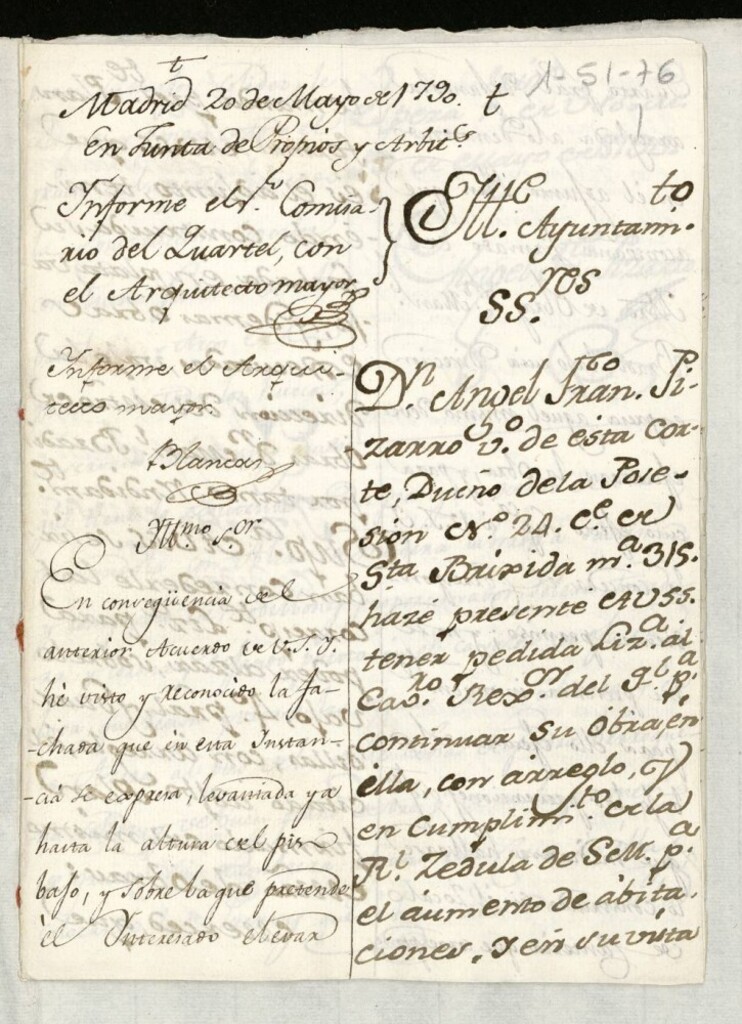 1-51-76
t
Madrid 20 de Mayo de 1790. t
En Junta de Propios y Arbit.s
Informe el s.r Comisa-
rio del Quartel, con
el Arquitecto mayor
Informe el Arqui-
tecto mayor.
Blancas
Ill.mo S.or
En consequencia del
anterior Acuerdo de V.S.Y.
hé visto y reconocido la fa-
chada que en esta Instan-
-cia se expresa, levantada ya
hasta la altura del piso
bajo, y sobre la que pretende
el Interesado elevar
Ill.e Ayuntam.to
SS.res
D.n Angel Fran.co Pi-
zarro v.o de esta Cor-
te, Dueño dela Pose-
sion N.o 24. C.e de
Sta Brixida m.a 315.
haze presente á V.SS.
tener pedida Liz.a al
Cav.ro Rex.or del q.l p.a
continuar su obra, en
ella, con arreglo, y
en Cumplim.to de la
R.l Zedula de S.M. p.a
el aumento de abita-
ciones, y en su vista